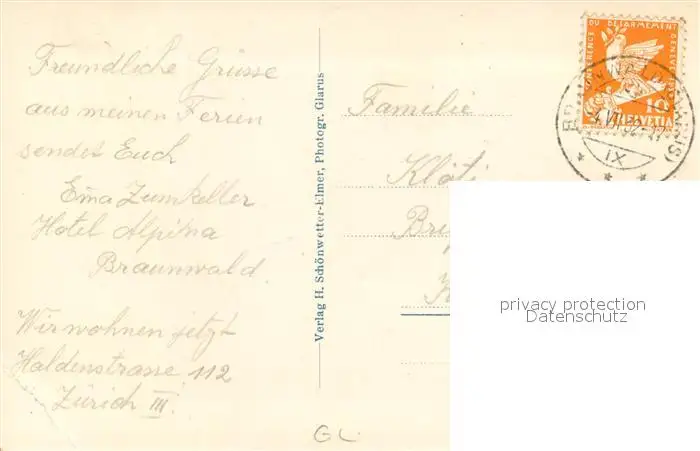 Freundliche Grüsse
aus meinen Ferien
sendet Euch
Ema Zumkeller
Hotel Alpina
Braunwald.
Wir wohnen jetzt
Haldenstrasse 112
Zürich III.
Verlag H. Schönwetter-Elmer, Photogr. Glarus
Familie
Kläti
CONFERENCE DU DESARMEMENT GENEVE
10
HELVETIA
BRAUNWALD (GLARUS)
IX
privacy protection
Datenschutz
GL